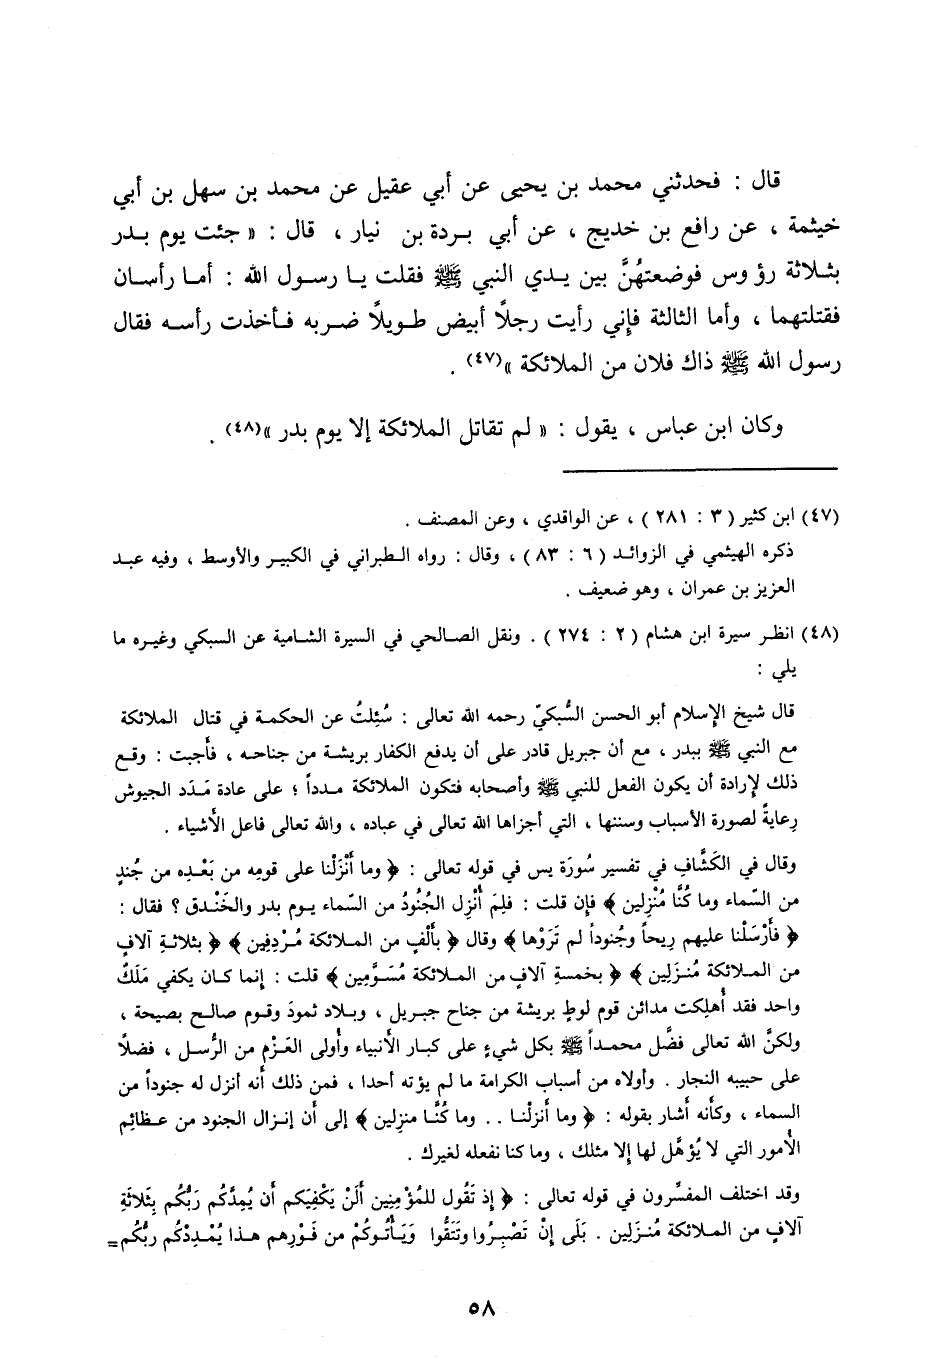 قال : فحدثني محمد بن يحيى عن أبي عقيل عن محمد بن سهل بن أبي
خيثمة ، عن رافع بن خديج ، عن أبي بردة بن نيار ، قال : « جئت يوم بدر
بثلاثة رؤوس فوضعتهُنَّ بين يدي النبي ﷺ فقلت يا رسول الله : أما رأسان
فقتلتهما ، وأما الثالثة فإني رأيت رجلاً أبيض طويلاً ضربه فأخذت رأسه فقال
رسول الله ﷺ ذاك فلان من الملائكة »(٤٧) .
وكان ابن عباس ، يقول : « لم تقاتل الملائكة إلا يوم بدر »(٤٨) .
(٤٧) ابن كثير ( ٣ : ٢٨١ ) ، عن الواقدي ، وعن المصنف .
ذكره الهيثمي في الزوائد ( ٦ : ٨٣ ) ، وقال : رواه الطبراني في الكبير والأوسط ، وفيه عبد
العزيز بن عمران ، وهو ضعيف .
(٤٨) انظر سيرة ابن هشام ( ٢ : ٢٧٤ ) . ونقل الصالحي في السيرة الشامية عن السبكي وغيره ما
يلي :
قال شيخ الإسلام أبو الحسن السُّبكيّ رحمه الله تعالى : سُئِلتُ عن الحكمة في قتال الملائكة
مع النبي ﷺ ببدر ، مع أن جبريل قادر على أن يدفع الكفار بريشة من جناحه ، فأجبت : وقع
ذلك لإرادة أن يكون الفعل للنبي ﷺ وأصحابه فتكون الملائكة مدداً ؛ على عادة مَدَد الجيوش
رِعايةً لصورة الأسباب وسننها ، التي أجزاها الله تعالى في عباده ، والله تعالى فاعل الأشياء .
وقال في الكَشَّاف في تفسير سُورَة يس في قوله تعالى : ﴿ وما أَنْزَلْنا على قومِه من بَعْدِه من جُندٍ
من السّماء وما كُنَّا مُنْزِلين ﴾ فإن قلت : فلِمَ أُنْزِل الجُنُودُ من السّماء يوم بدر والخَنْدق ؟ فقال :
﴿ فأَرْسَلْنا عليهم رِيحاً وجُنوداً لم تَرَوْها ﴾ وقال ﴿ بأَلْفٍ من الملائكة مُرْدِفِين ﴾ ﴿ بثلاثةِ آلافٍ
من الملائكة مُنزَلِين ﴾ ﴿ بخمسةِ آلافٍ من الملائكة مُسَوَّمِين ﴾ قلت : إنما كان يكفي مَلَكٌ
واحد فقد أُهلِكت مدائن قوم لوطٍ بريشة من جناح جبريل ، وبلاد ثمودَ وقوم صالح بصيحة ،
ولكنَّ الله تعالى فضَّل محمداً ﷺ بكل شيءٍ على كبار الأنبياء وأولى العَزْم من الرُّسل ، فضلاً
على حبيبه النجار . وأولاه من أسباب الكرامة ما لم يؤته أحدا ، فمن ذلك أنه أنزل له جنوداً من
السماء ، وكأنه أشار بقوله : ﴿ وما أنزلْنا .. وما كُنَّا منزلِين ﴾ إلى أن إنزال الجنود من عظائِم
الأُمور التي لا يُؤهَّل لها إلا مثلك ، وما كنا نفعله لغيرك .
وقد اختلف المفسِّرون في قوله تعالى : ﴿ إذ تَقُول للمُؤْمِنِين أَلَنْ يَكْفِيَكم أن يُمِدَّكم رَبُّكم بِثَلاثَةِ
آلافٍ من الملائكة مُنزَلِين . بَلَى إنْ تَصْبِرُوا وتَتَقُّوا وَيَأْتُوكُمْ من فَوْرِهم هذا يُمْدِدْكُم ربُّكم=
٥٨